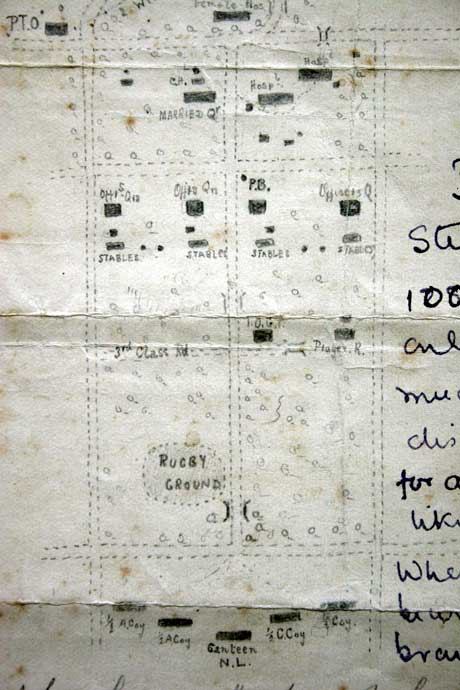 Female Hos
P.T.O
Hosp
C.H.
Hosp
MARRIED Qr
Off.s Qrs
Offrs Qrs
P.B.
Officers Q
STABLES
STABLES
STABLES
STABLES
3rd Class Rd
Prayer. R.
RUGBY
GROUND
½ A Coy
½ A Coy
Canteen
N.L.
½ C Coy
½ Coy.
Ste
100
onl
muc
dis
for a
lik
Whe
bran